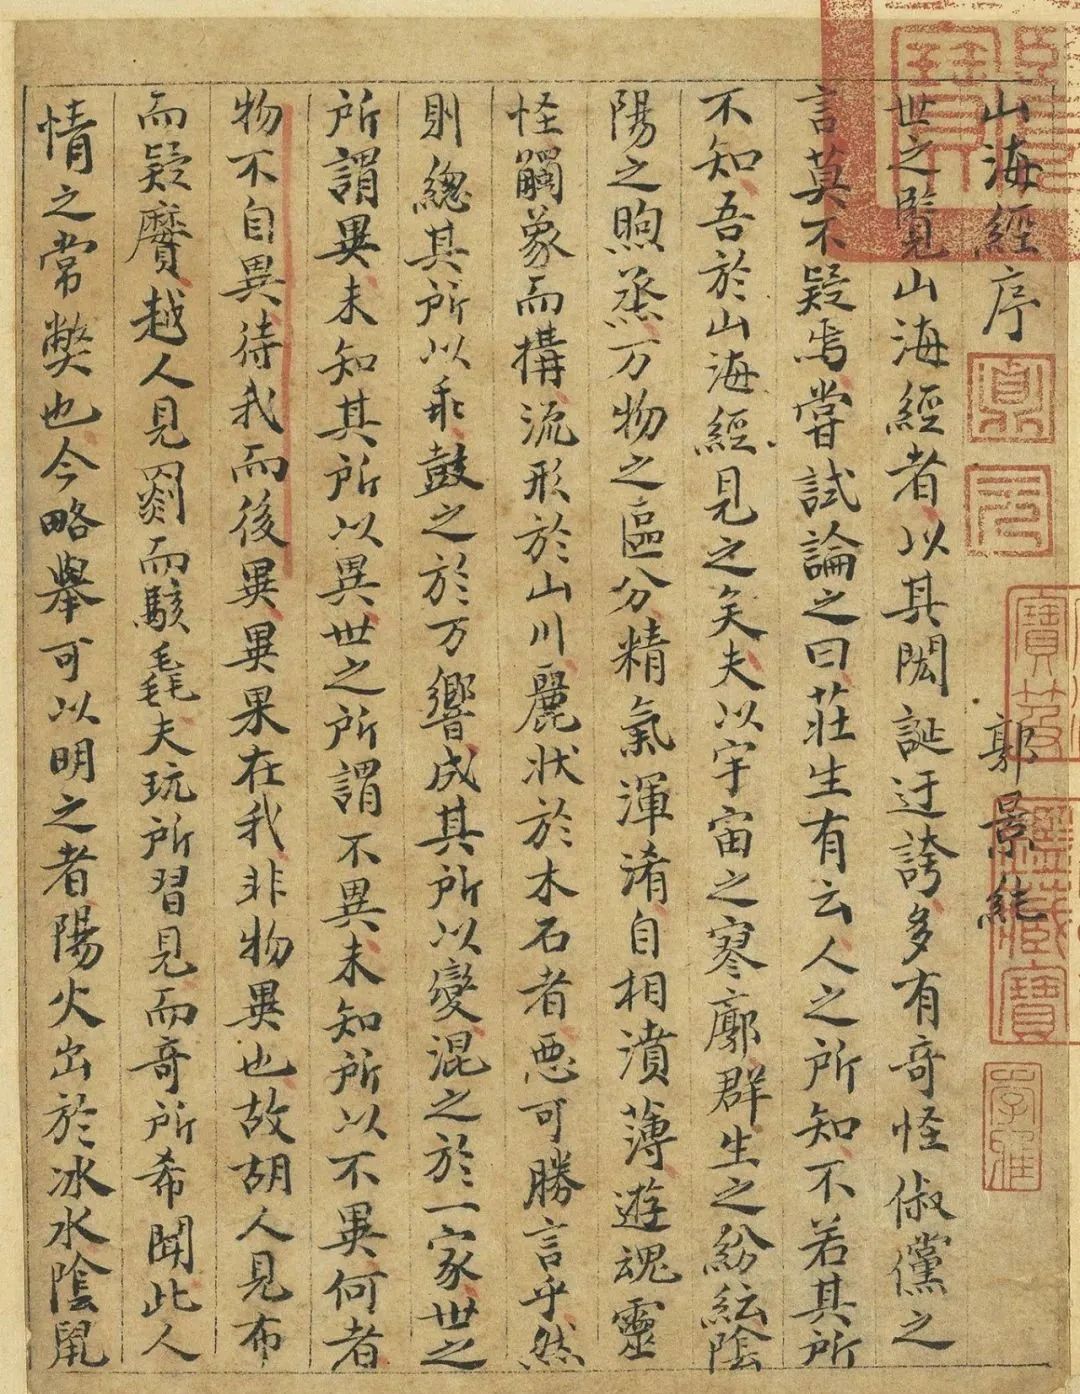 山海經序 郭景純
世之覧山海經者以其閎誕迂誇多有竒怪俶儻之
言莫不疑焉嘗試論之曰莊生有云人之所知不若其所
不知吾於山海經見之矣夫以宇宙之寥廓群生之紛紜陰
陽之煦烝万物之區分精氣渾淆自相濆薄遊魂靈
怪觸象而構流形於山川麗狀於木石者惡可勝言乎然
則緫其所以乖鼓之於万響成其所以變混之於一家世之
所謂異未知其所以異世之所謂不異未知所以不異何者
物不自異待我而後異異果在我非物異也故胡人見布
而疑黂越人見罽而駭毳夫玩所習見而竒所希聞此人
情之常獘也今略舉可以明之者陽火出於冰水陰鼠